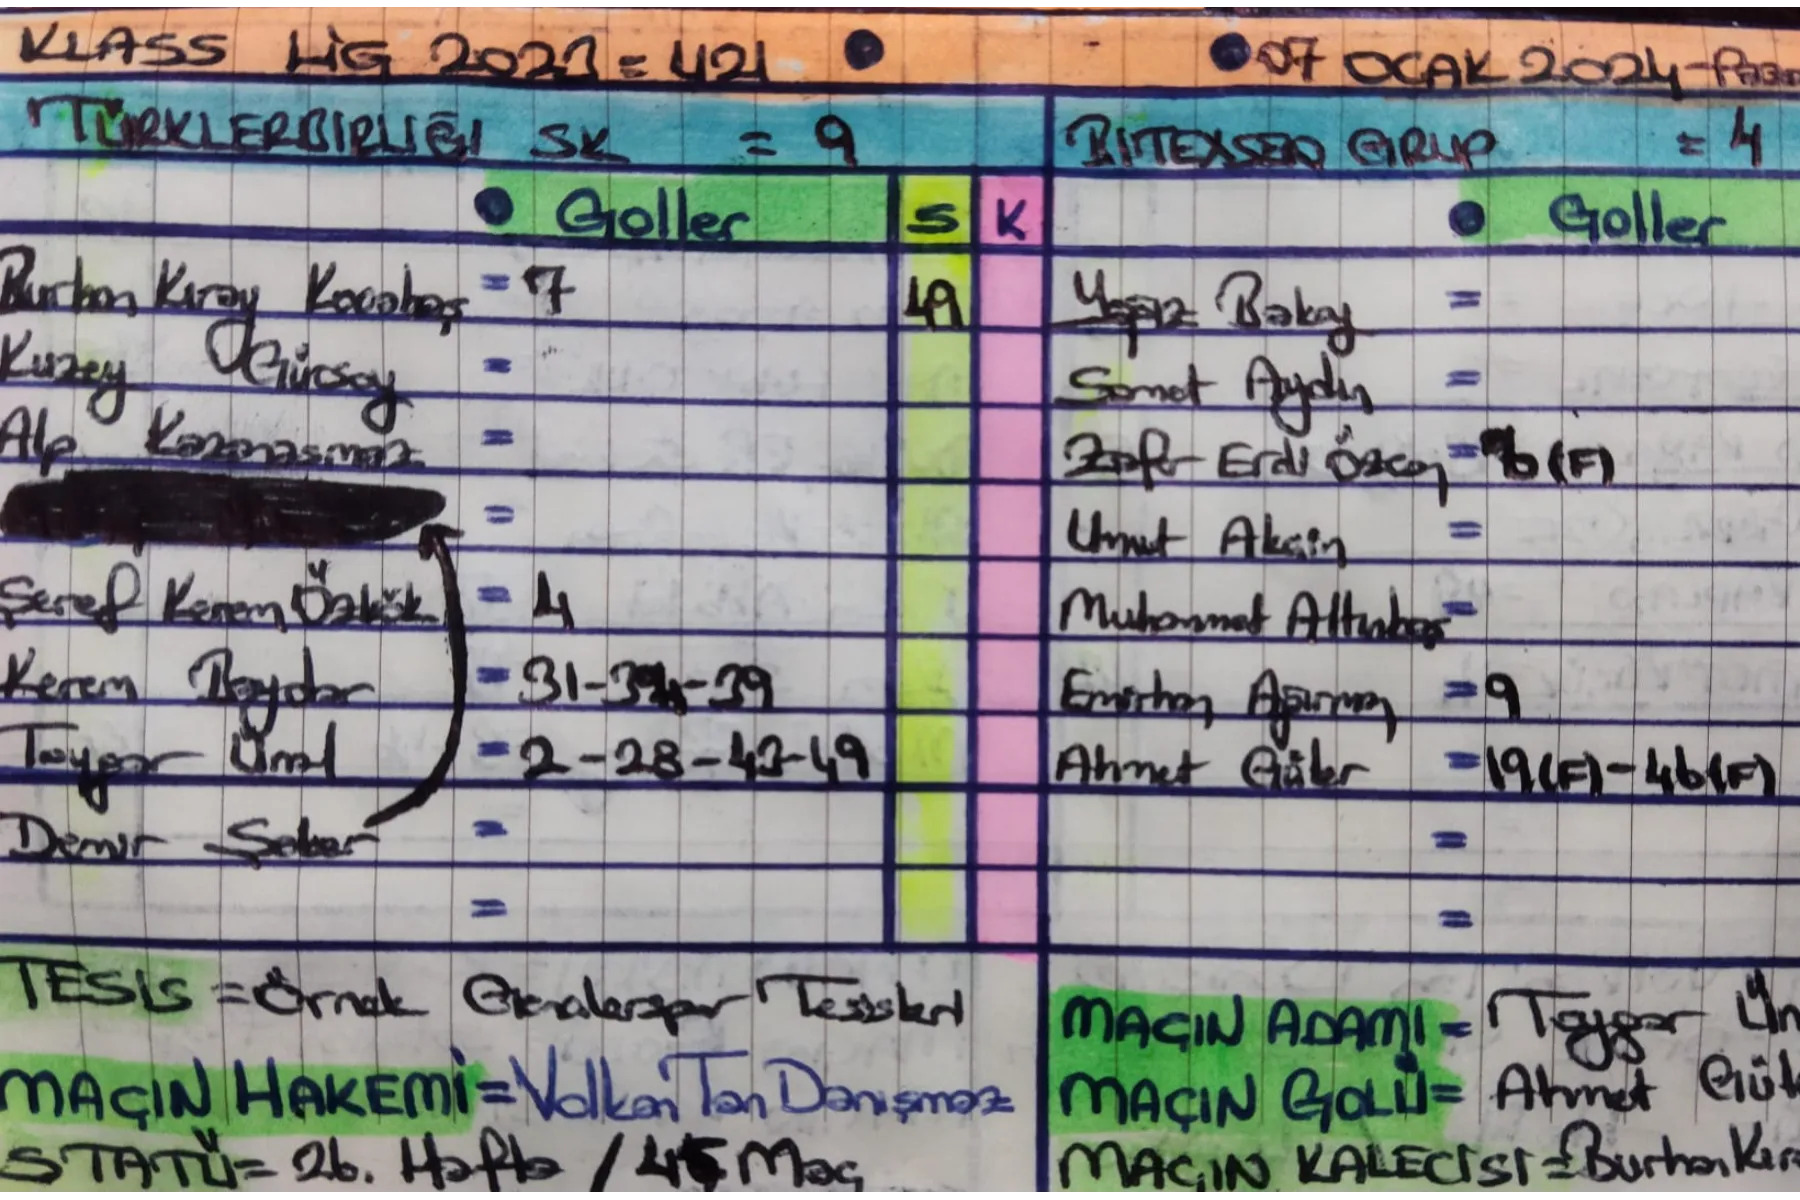 KLASS LİG 2023 = 421 07 OCAK 2024 -
TÜRKLERBİRLİĞİ SK = 9
Goller S K
Burhan Kıray Kocabaş = 7 49
Kuzey Gürsoy =
Alp Kazanasmaz =
=
Şeref Kerem Özkök = 4
Kerem Baydar = 31-34-39
Taygar Ünal = 2-28-43-49
Demir Şeker =
=
BITEXSEN GRUP = 4
Goller
Yağız Bakay =
Samet Aydın =
Zafer Erdi Özcan = 6 (F)
Umut Akgin =
Muhammet Altunbaş =
Emirhan Aparman = 9
Ahmet Güler = 19(F)-46(F)
=
=
TESİS = Örnek Tesisleri
MAÇIN HAKEMİ = Volkan Tan Danışmaz
STATÜ = 26. Hafta / 45 Maç
MAÇIN ADAMI = Taygar Ün
MAÇIN GOLÜ = Ahmet Gül
MAÇIN KALECİSİ = Burhan Kıra